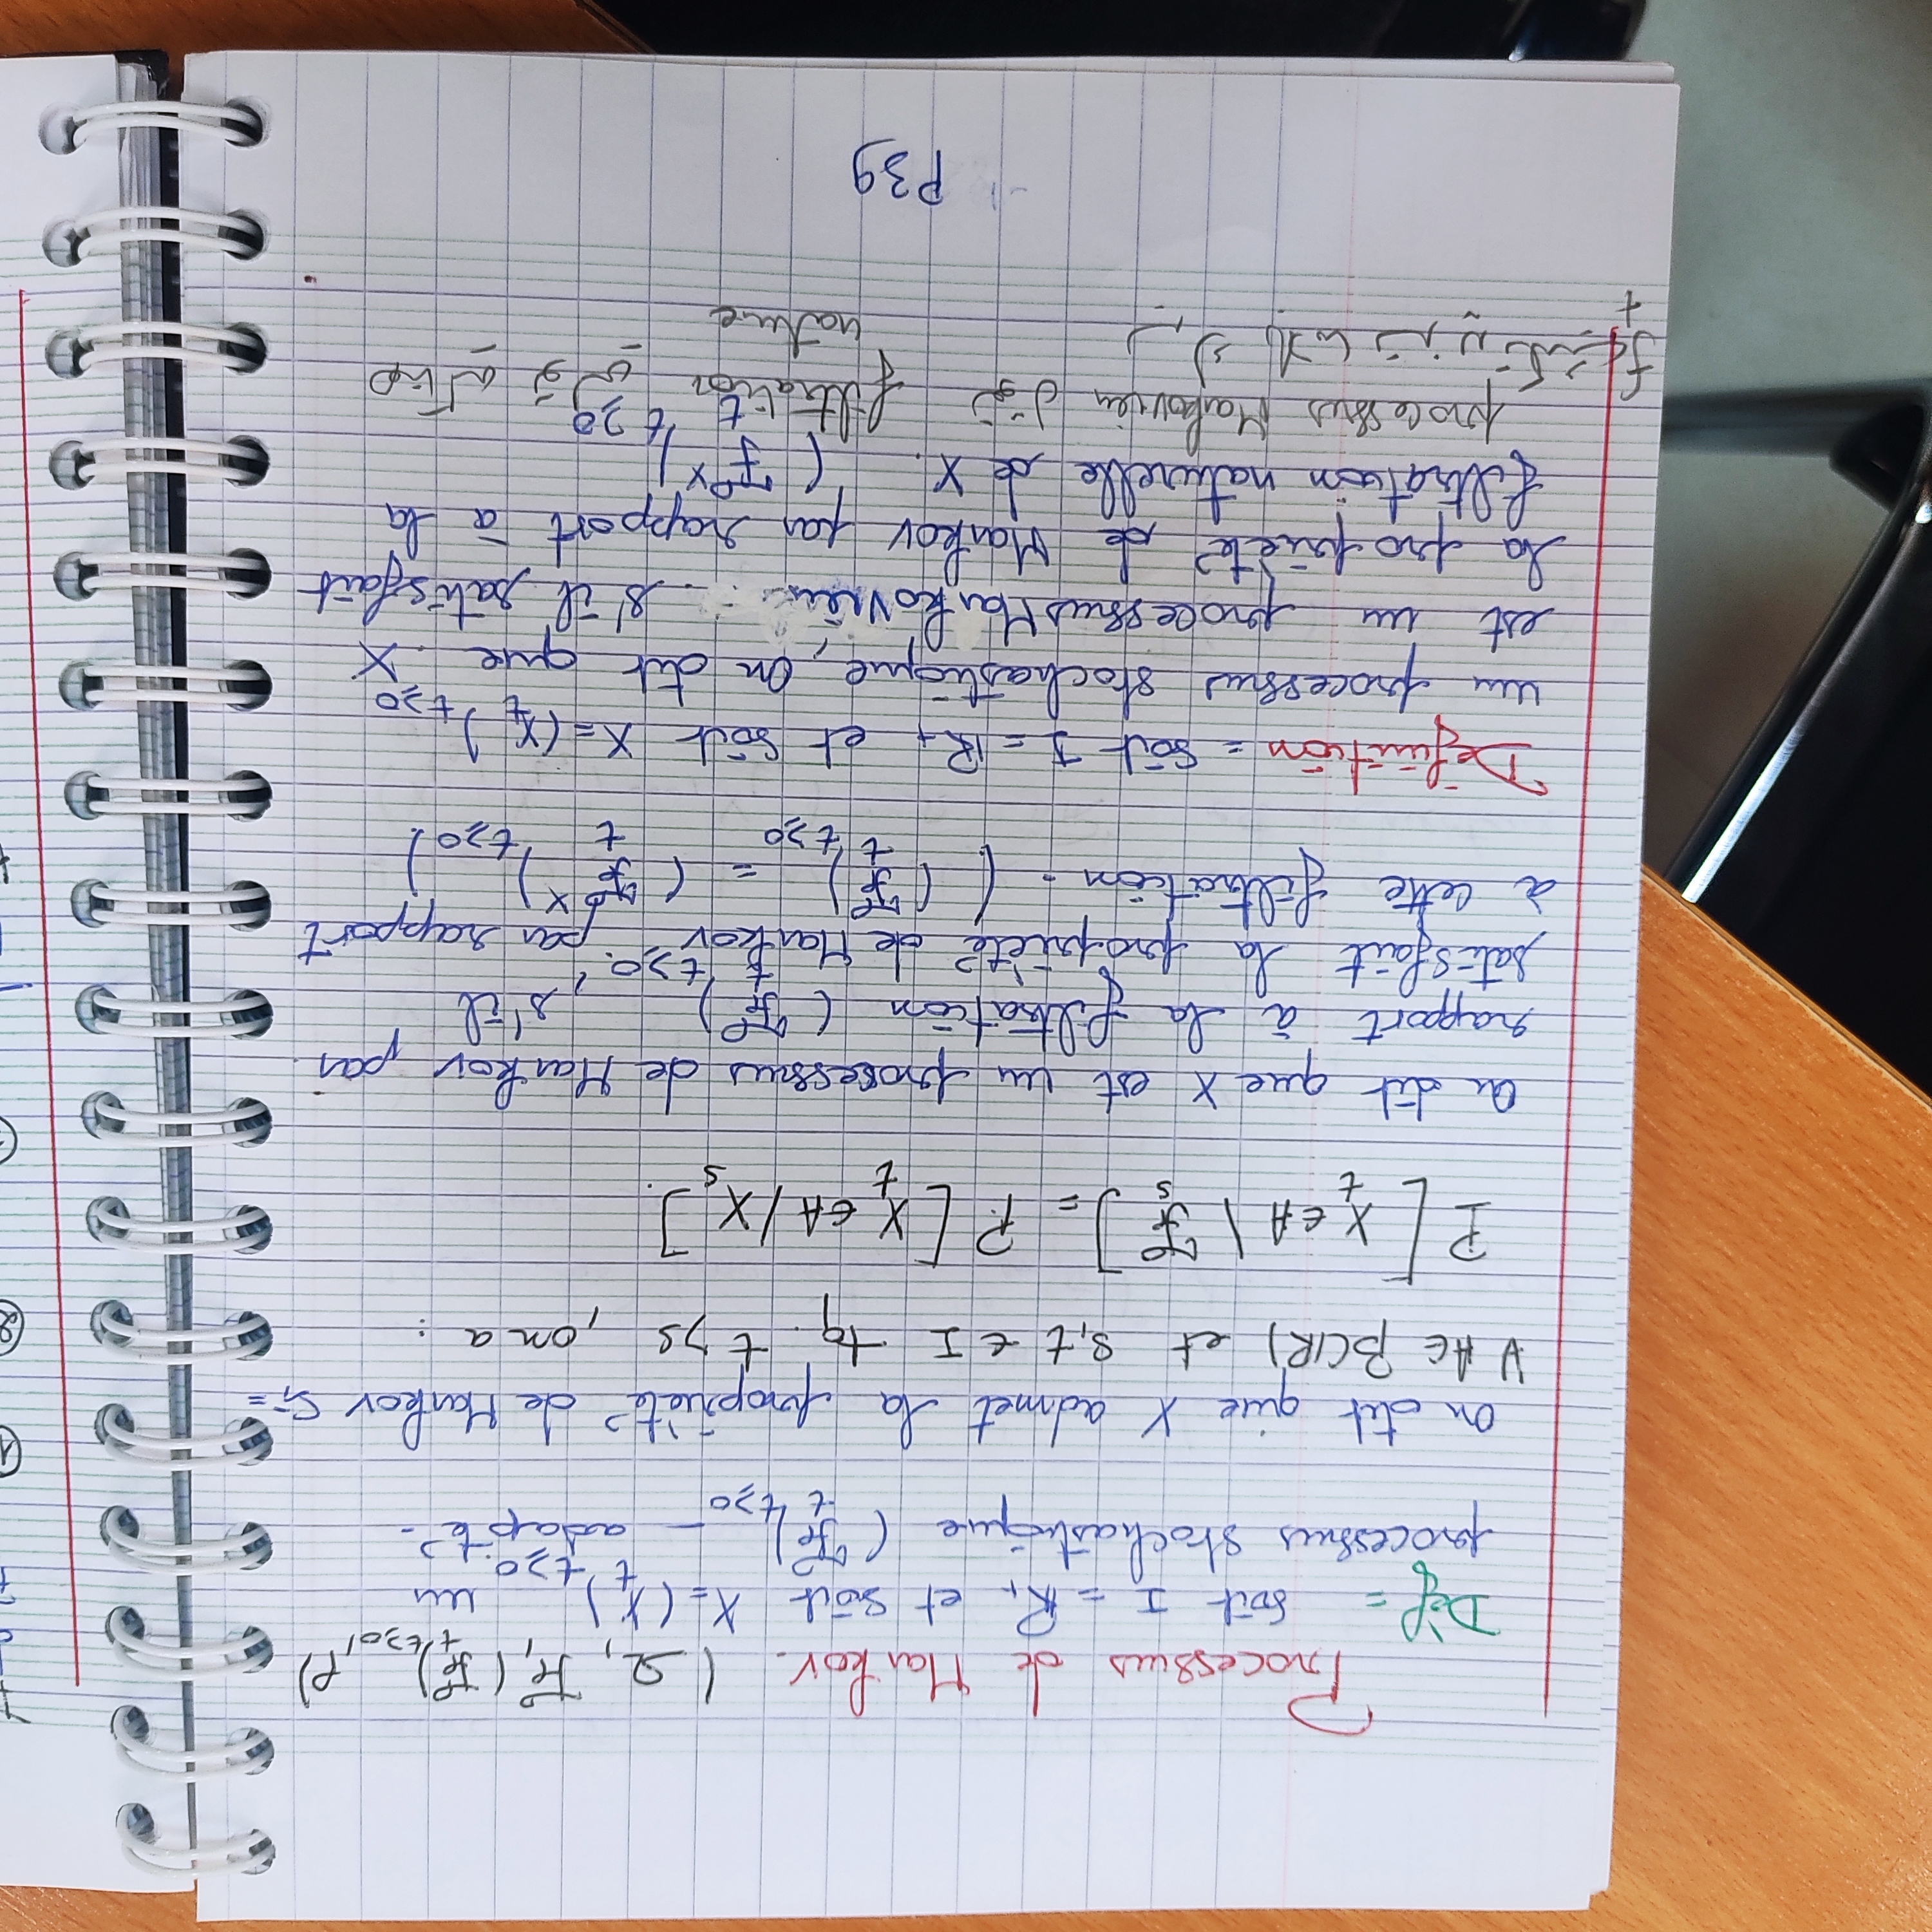 Processus de Markov. (Ω, ℱ, (ℱ_t)_{t≥0}, P)
Dèf = soit I = ℝ₊ et soit X = (X_t)_{t≥0} un
processus stochastique (ℱ_t)_{t≥0} – adapté.
On dit que X admet la propriété de Markov si =
∀ A ∈ β(ℝ) et s,t ∈ I tq. t > s , on a :
P [ X_t ∈ A \ ℱ_s ] = P. [ X_t ∈ A / X_s ].
On dit que X est un processus de Markov par
rapport à la filtration (ℱ_t)_{t≥0}, s'il
satisfait la propriété de Markov par rapport
à cette filtration. ( (ℱ_t)_{t≥0} = (ℱ_t^X)_{t≥0} )
Définition = soit I = ℝ₊ et soit X = (X_t)_{t≥0}
un processus stochastique, On dit que X
est un processus Markovién s'il satisfait
la propriété de Markov par rapport à la
filtration naturelle de X. (ℱ_t^X)_{t≥0}
processus Markovien filtration
بلاما تزيد f_t
nature
P39